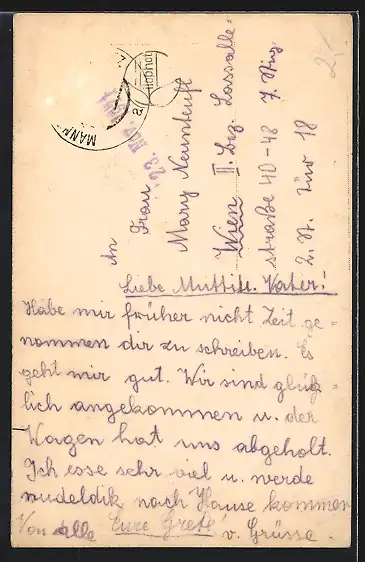 MANN
23. Nov.
An
Frau
Mary
Wien II. Bez. Lassalle-
straße 40-48 7. Stig.
2. St. Tür 18
Liebe Mutti u. Vater!
Habe mir früher nicht Zeit ge-
nommen dir zu schreiben. Es
geht mir gut. Wir sind glük-
lich angekommen u. der
Wagen hat uns abgeholt.
Ich esse sehr viel u. werde
nudeldik nach Hause kommen
Von alle Eure Grete v. Grüsse.